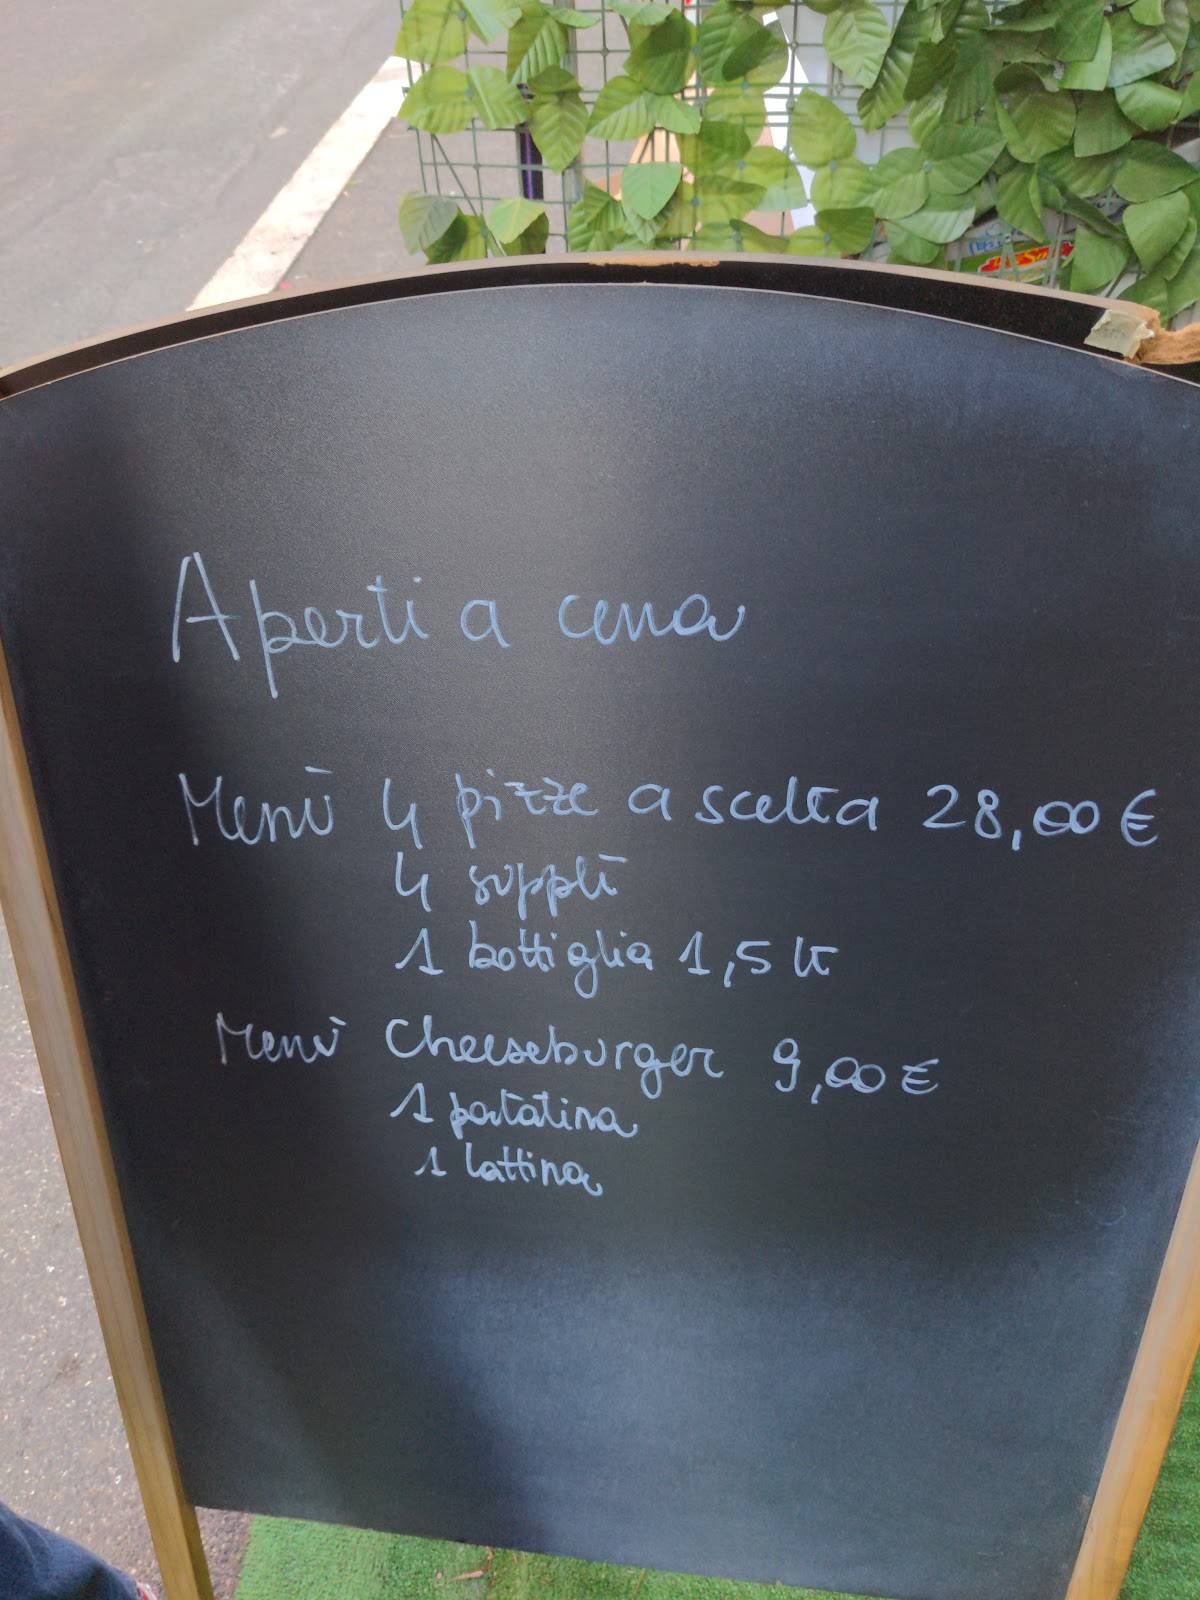 Aperti a cena
Menù 4 pizze a scelta 28,00 €
4 supplì
1 bottiglia 1,5 lt
Menù Cheeseburger 9,00 €
1 patatina
1 lattina